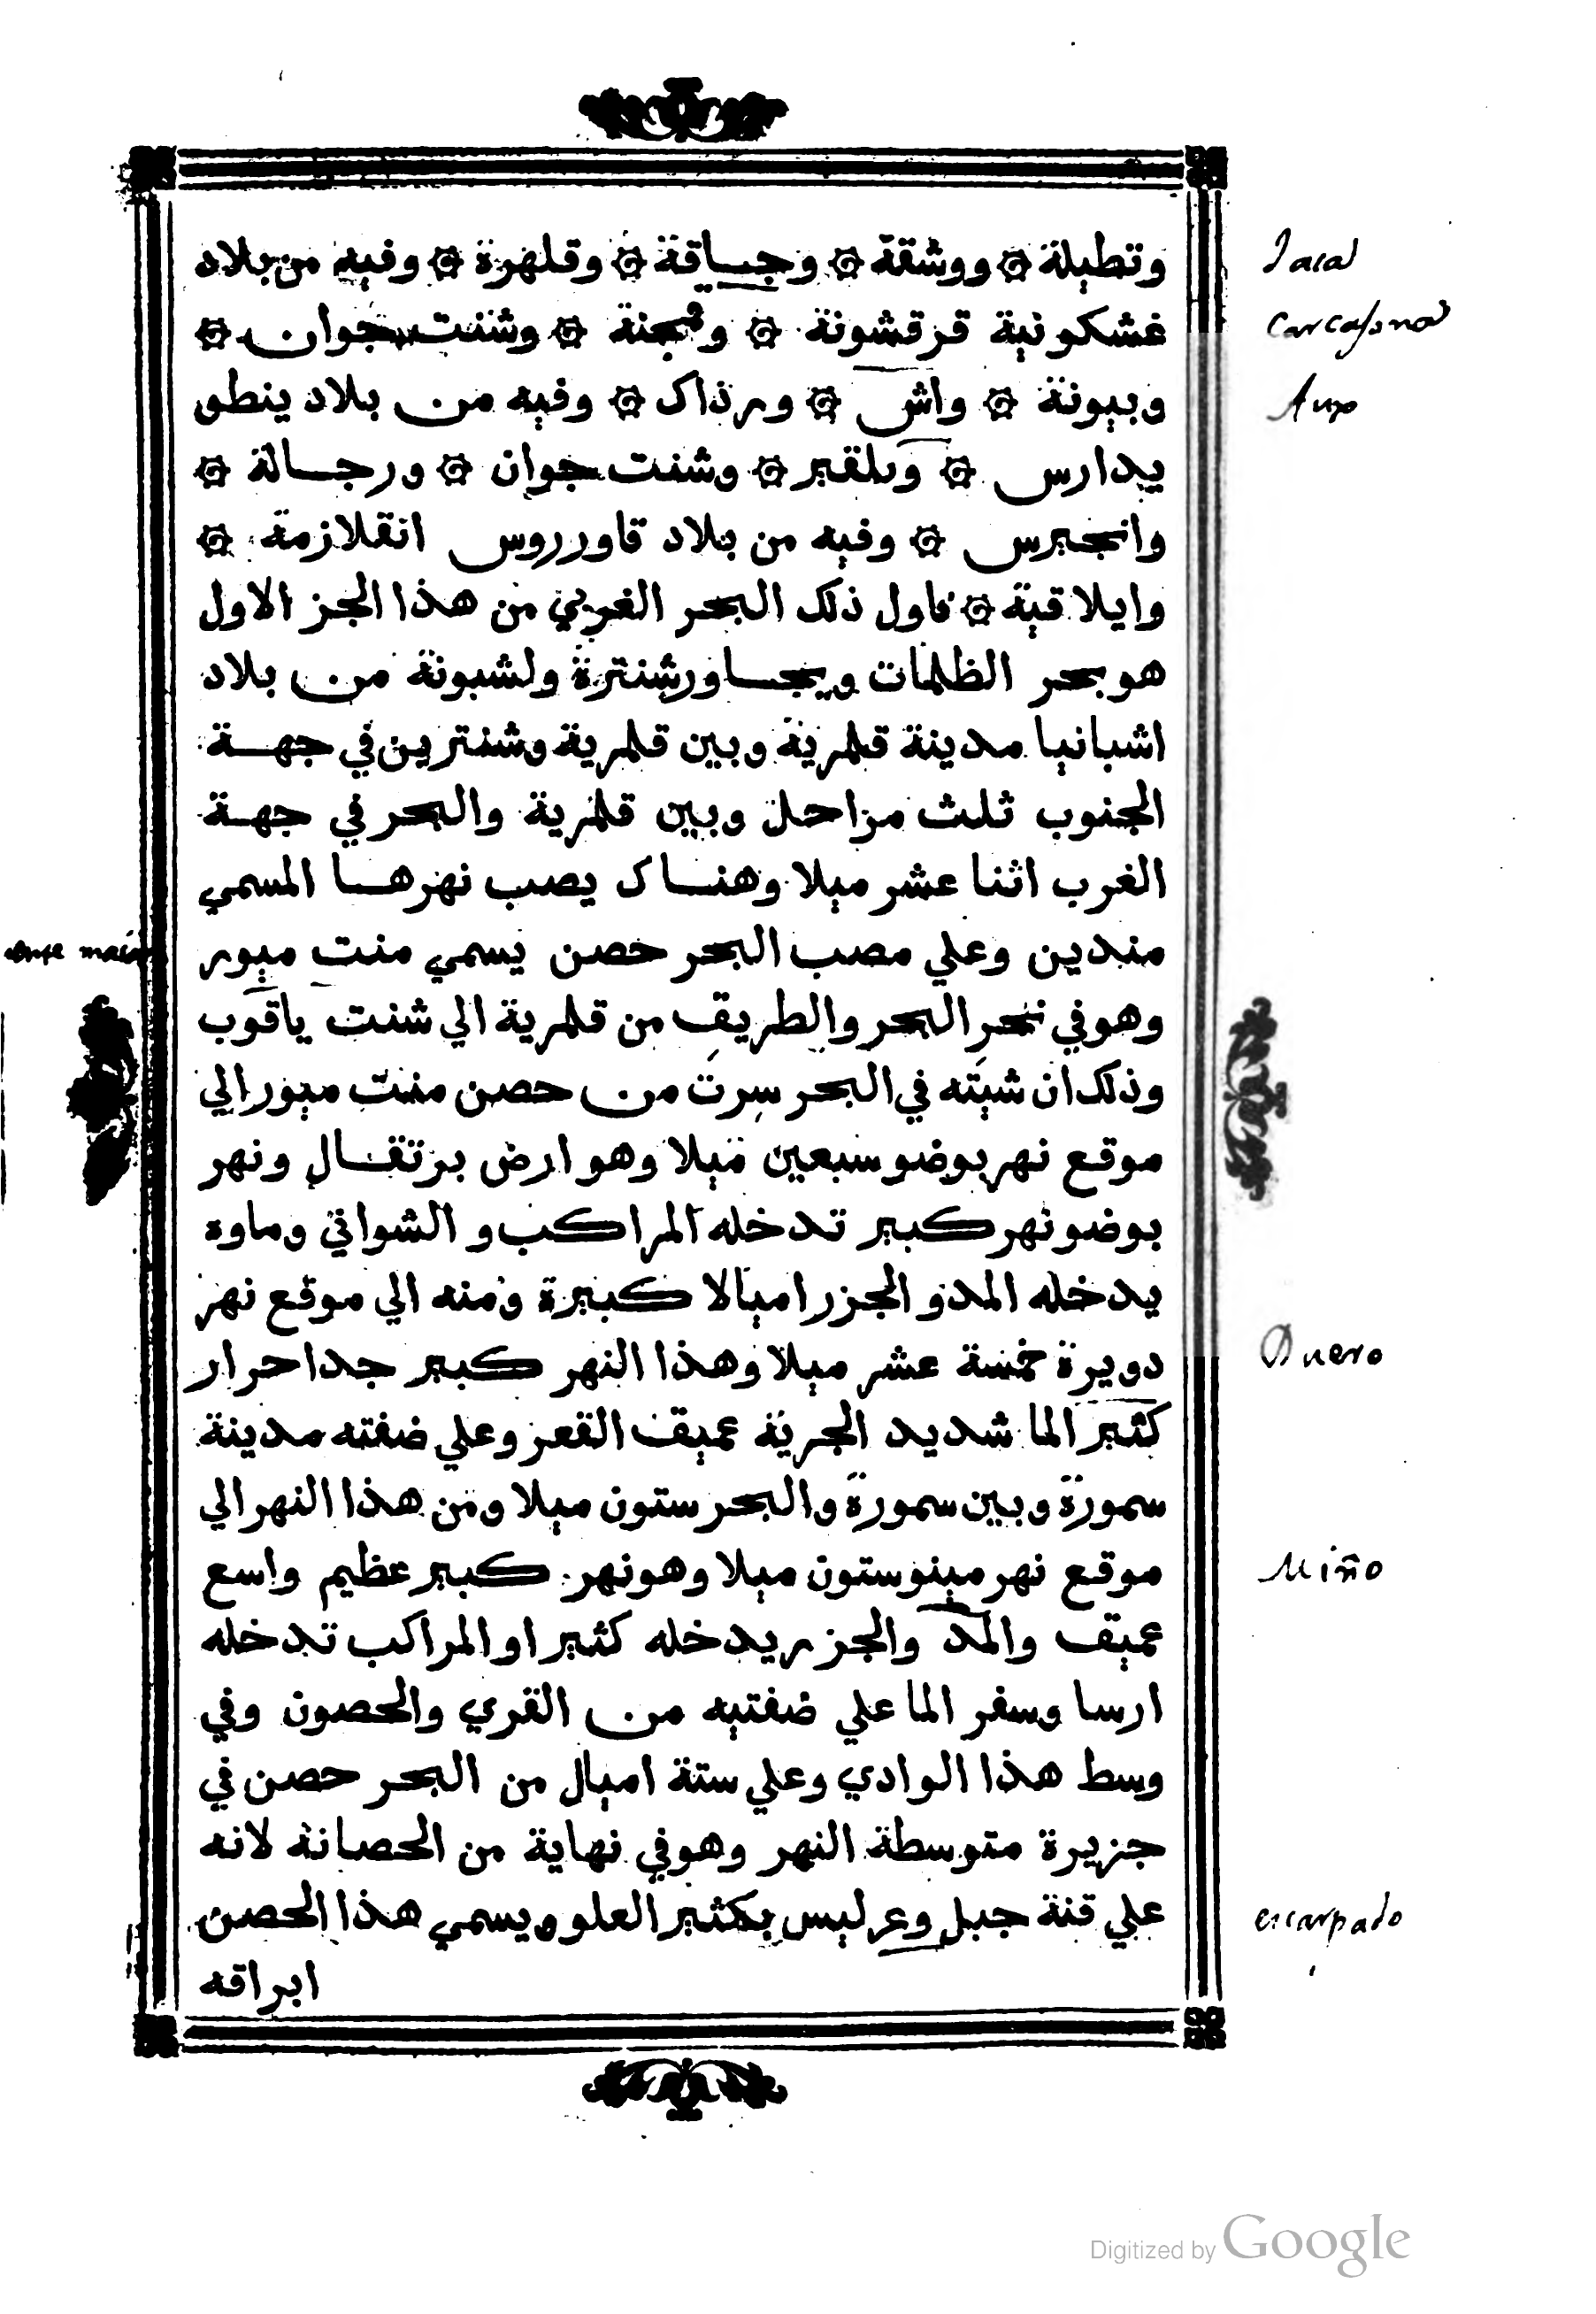 وتطيلة ۞ ووشقة ۞ وجاقة ۞ وقلهرة ۞ وفيه من بلاد
غشكونية قرقشونة ۞ وقمجنة ۞ وشنت جوان ۞
وبيونة ۞ واش ۞ ورذاك ۞ وفيه من بلاد ينطو
يدارس ۞ وبلقير ۞ وشنت جوان ۞ ورجالة ۞
وانجيرس ۞ وفيه من بلاد قاورروس انقلازمة ۞
وايلاقية ۞ فاول ذلك البحر الغربي من هذا الجز الاول
هو بحر الظلمات ويجاور شنترة ولشبونة من بلاد
اشبانيا مدينة قلمرية وبين قلمرية وشنترين في جهة
الجنوب ثلث مراحل وبين قلمرية والبحر في جهة
الغرب اثنا عشر ميلا وهناك يصب نهرها المسمي
مندين وعلي مصب البحر حصن يسمي منت ميور
وهو في نحر البحر والطريق من قلمرية الي شنت ياقوب
وذلك ان شيته في البحر سرت من حصن منت ميور الي
موقع نهر بوضو سبعين ميلا وهو ارض برتقال ونهر
بوضو نهر كبير تدخله المراكب و الشواني وماوه
يدخله المد و الجزر اميالا كبيرة ومنه الي موقع نهر
دويرة خمسة عشر ميلا وهذا النهر كبير جدا حرار
كثير الما شديد الجرية عميق القعر وعلي ضفته مدينة
سمورة وبين سمورة والبحر ستون ميلا ومن هذا النهر الي
موقع نهر مينو ستون ميلا وهو نهر كبير عظيم واسع
عميق والمد والجزر يدخله كثيرا والمراكب تدخله
ارسا وسفر الما علي ضفتيه من القري والحصون وفي
وسط هذا الوادي وعلي ستة اميال من البحر حصن في
جزيرة متوسطة النهر وهو في نهاية من الحصانة لانه
علي قنة جبل وعر ليس بكثير العلو ويسمي هذا الحصن
ابراقه
Jaca
Carcasona
Aux
monte maior
Duero
Miño
escarpado
Digitized by Google